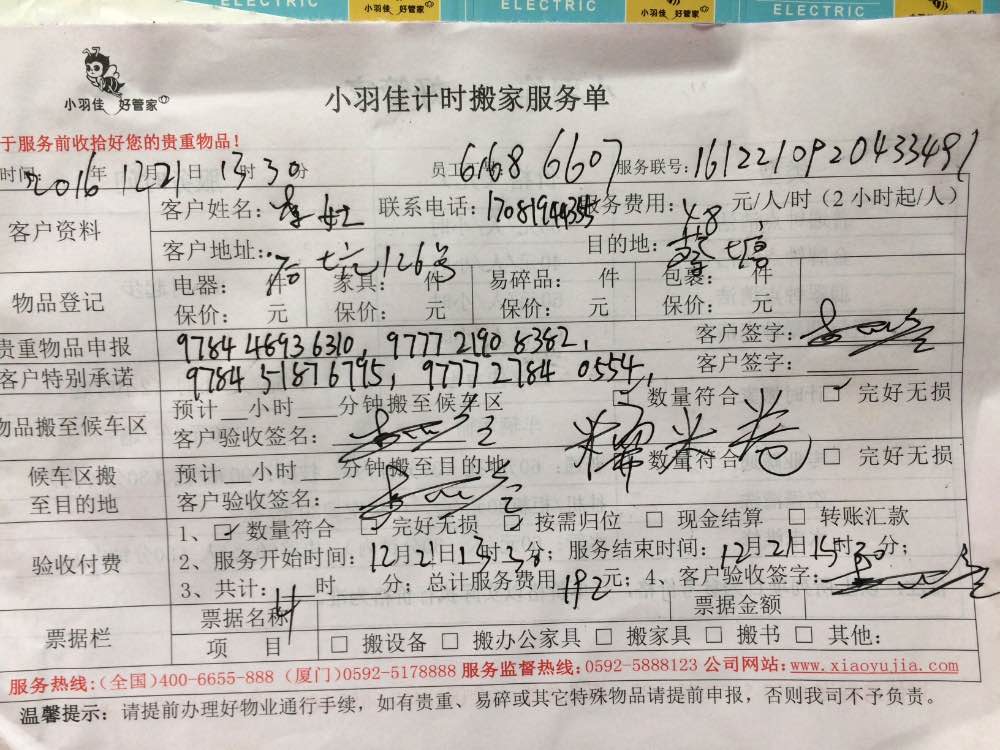 小羽佳 好管家 ELECTRIC 小羽佳 好管家 ELECTRIC
小羽佳 好管家
小羽佳计时搬家服务单
于服务前收拾好您的贵重物品！
时间：2016年12月21日13时30分 员工 6168 6607 服务联号：161221092043349
客户资料
客户姓名： 联系电话：170819 服务费用：48元/人/时（2小时起/人）
客户地址： 126号 目的地：
物品登记
电器： 件 家具： 件 易碎品： 件 包裹： 件
保价： 元 保价： 元 保价： 元 保价： 元
贵重物品申报 9784 4693 6310，97772190 8382， 客户签字：
客户特别承诺 9784 5187 6795，97772784 0554， 客户签字：
物品搬至候车区
预计 小时 分钟搬至候车区 ☑ 数量符合 ☑ 完好无损
客户验收签名：
候车区搬至目的地
预计 小时 分钟搬至目的地 数量符合 □ 完好无损
客户验收签名：
验收付费
1、☑ 数量符合 ☑ 完好无损 ☑ 按需归位 □ 现金结算 □ 转账汇款
2、服务开始时间：12月21日13时30分；服务结束时间：12月21日15时30；
3、共计： 时 分；总计服务费用192元；4、客户验收签字：
票据栏
票据名称 票据金额
项 目 □ 搬设备 □ 搬办公家具 □ 搬家具 □ 搬书 □ 其他：
服务热线：（全国）400-6655-888（厦门）0592-5178888 服务监督热线：0592-5888123 公司网站：www.xiaoyujia.com
温馨提示：请提前办理好物业通行手续，如有贵重、易碎或其它特殊物品请提前申报，否则我司不予负责。